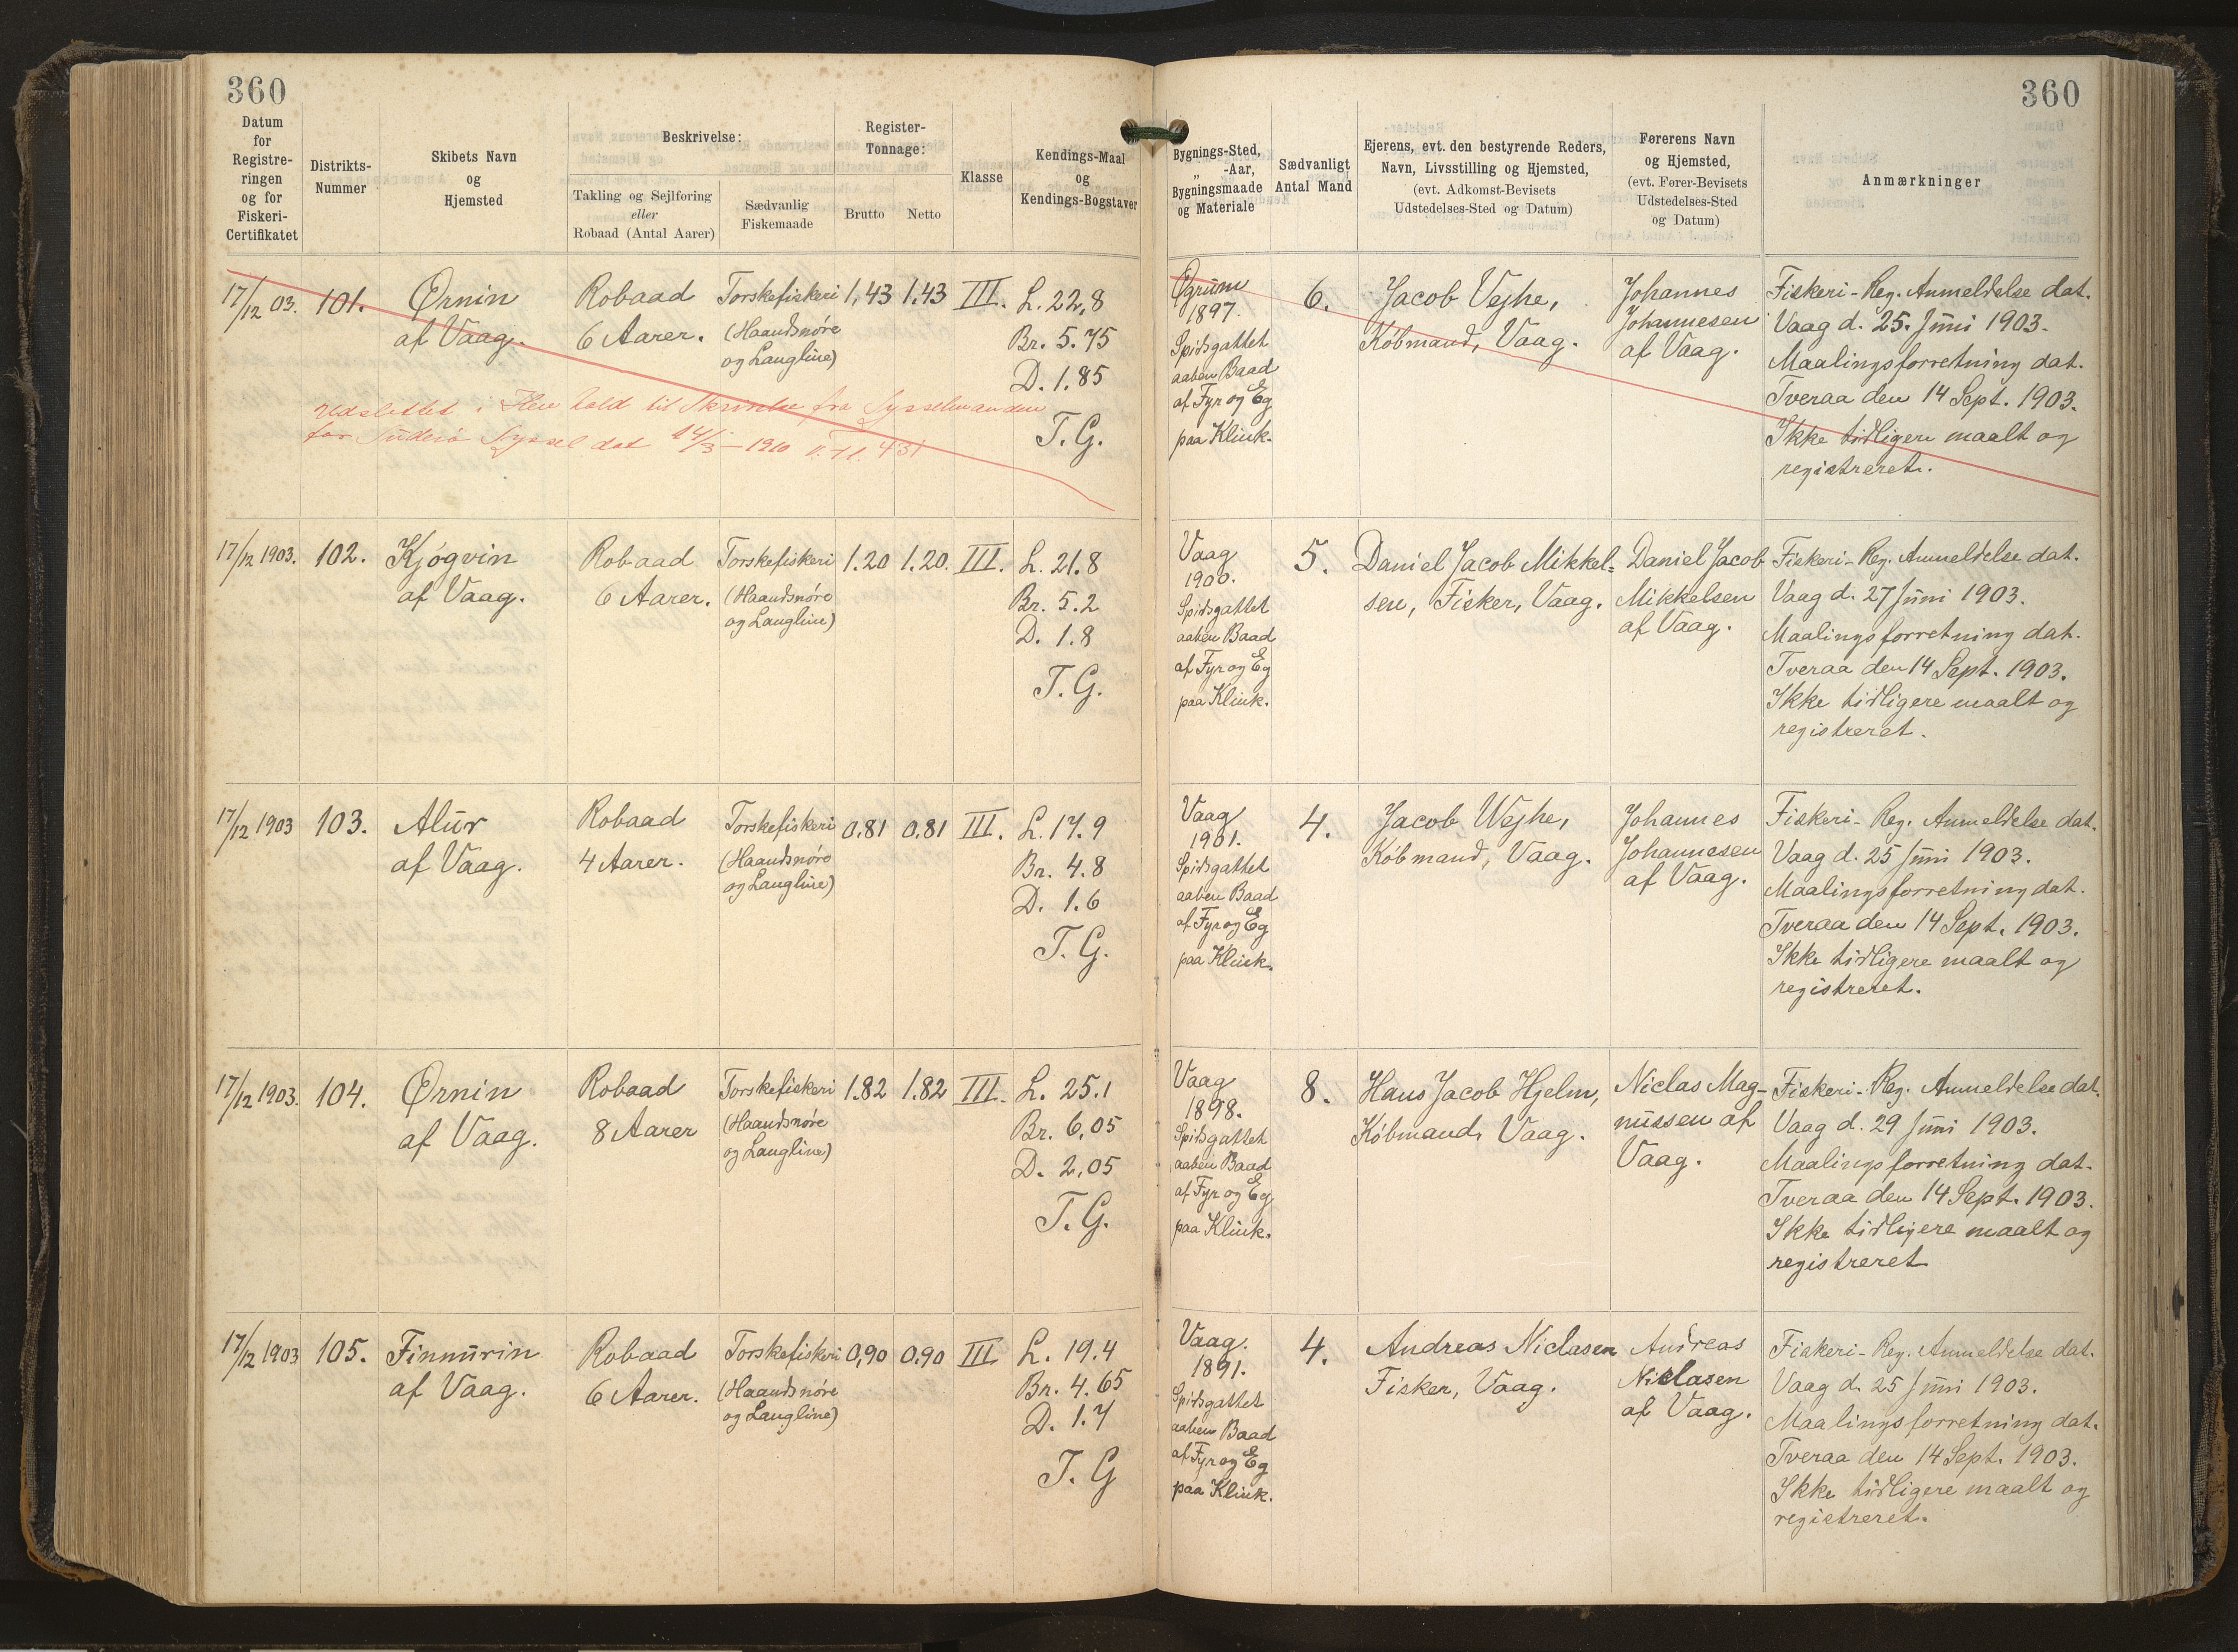 360
360
Datum
for
Registre-
ringen
og for
Fiskeri-
Certifikatet
Distrikts-
Nummer
Skibets Navn
og
Hjemsted
Beskrivelse:
Takling og Sejlføring
eller
Robaad (Antal Aarer)
Sædvanlig
Fiskemaade
Register-
Tonnage:
Brutto
Netto
Klasse
Kendings-Maal
og
Kendings-Bogstaver
Bygnings-Sted,
„ -Aar,
Bygningsmaade
og Materiale
Sædvanligt
Antal Mand
Ejerens, evt. den bestyrende Reders,
Navn, Livsstilling og Hjemsted,
(evt. Adkomst-Bevisets
Udstedelses-Sted og Datum)
Førerens Navn
og Hjemsted,
(evt. Fører-Bevisets
Udstedelses-Sted
og Datum)
Anmærkninger
17/12 03.
101.
Ørnin
af Vaag.
Robaad
6 Aarer.
Torskefiskeri
(Haandsnøre
og Langline)
1,43
1.43
III.
L. 22,8
Br. 5.75
D. 1.85
T. G.
Udslettet i Hen hold til Skrivelse fra Sysselmanden
for Suderø Syssel dat 14/3 - 1910
Øgrum
1897.
Spidsgattet
aaben Baad
af Fyr og Eg
paa Klink.
6.
Jacob Vejhe,
Købmand, Vaag.
Johannes
Johannesen
af Vaag.
Fiskeri-Reg. Anmeldelse dat.
Vaag d. 25. Juni 1903.
Maalingsforretning dat.
Tveraa den 14 Sept. 1903.
Ikke tidligere maalt og
registreret.
17/12 1903.
102.
Kjøgvin
af Vaag.
Robaad
6 Aarer.
Torskefiskeri
(Haandsnøre
og Langline)
1.20
1.20.
III.
L. 21.8
Br. 5.2
D. 1.8
T. G.
Vaag
1900.
Spidsgattet
aaben Baad
af Fyr og Eg
paa Klink.
5.
Daniel Jacob Mikkel=
sen, Fisker, Vaag.
Daniel Jacob
Mikkelsen
af Vaag.
Fiskeri-Reg. Anmeldelse dat.
Vaag d. 27 Juni 1903.
Maalingsforretning dat.
Tveraa den 14 Sept. 1903.
Ikke tidligere maalt og
registreret.
17/12 1903
103.
Alur
af Vaag.
Robaad
4 Aarer.
Torskefiskeri
(Haandsnøre
og Langline)
0.81
0.81
III.
L. 17.9
Br. 4.8
D. 1.6
T. G.
Vaag
1901.
Spidsgattet
aaben Baad
af Fyr og Eg
paa Klink.
4.
Jacob Wejhe,
Købmand, Vaag.
Johannes
Johannesen
af Vaag.
Fiskeri-Reg. Anmeldelse dat.
Vaag d. 25 Juni 1903.
Maalingsforretning dat.
Tveraa den 14 Sept. 1903.
Ikke tidligere maalt og
registreret.
17/12 1903.
104.
Ørnin
af Vaag.
Robaad
8 Aarer
Torskefiskeri
(Haandsnøre
og Langline)
1.82
1.82
III.
L. 25.1
Br. 6,05
D. 2,05
T. G.
Vaag
1898.
Spidsgattet
aaben Baad
af Fyr og Eg
paa Klink.
8.
Hans Jacob Hjelm,
Købmand, Vaag.
Niclas Mag-
nussen af
Vaag.
Fiskeri-Reg. Anmeldelse dat.
Vaag d. 29 Juni 1903.
Maalingsforretning dat.
Tveraa den 14 Sept. 1903.
Ikke tidligere maalt og
registreret
17/12 1903
105.
Finnurin
af Vaag.
Robaad
6 Aarer.
Torskefiskeri
(Haandsnøre
og Langline)
0,90
0.90
III
L. 19.4
Br. 4.65
D. 1.7
T. G
Vaag.
1891.
Spidsgattet
aaben Baad
af Fyr og Eg
paa Klink.
4.
Andreas Niclasen
Fisker, Vaag.
Andreas
Niclasen
af Vaag.
Fiskeri-Reg. Anmeldelse dat.
Vaag d. 25 Juni 1903.
Maalingsforretning dat.
Tveraa den 14 Sept. 1903.
Ikke tidligere maalt og
registreret.